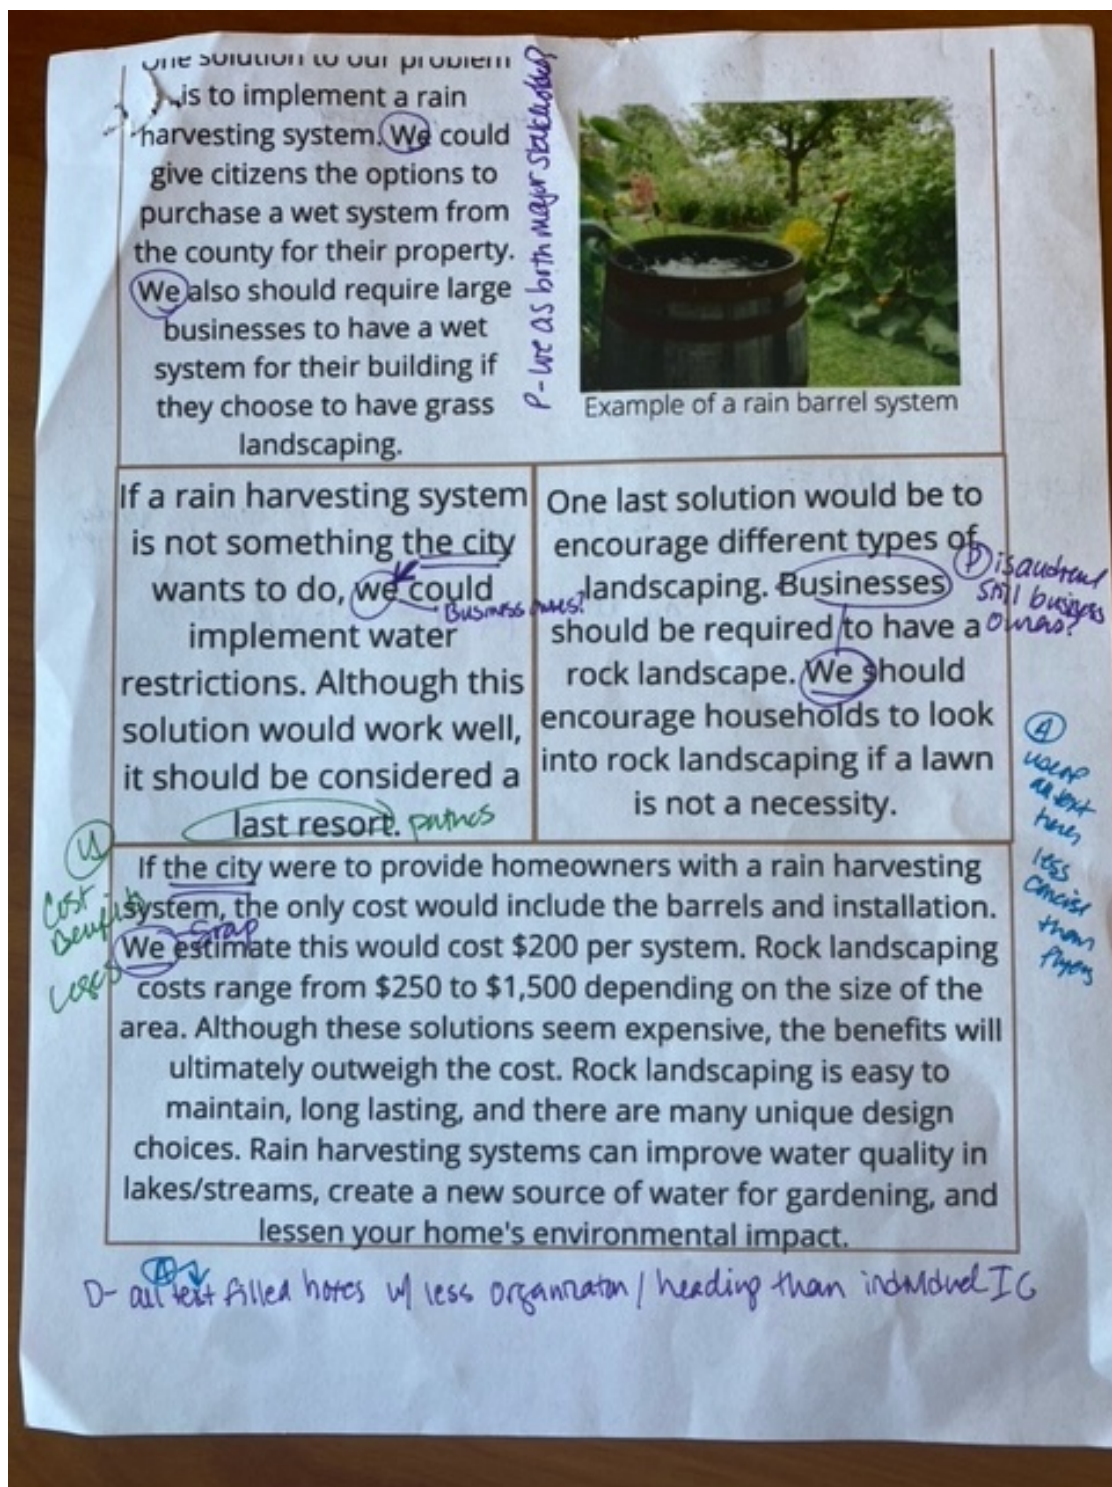 One solution to our problem
is to implement a rain
harvesting system. We could
give citizens the options to
purchase a wet system from
the county for their property.
We also should require large
businesses to have a wet
system for their building if
they choose to have grass
landscaping.
P - we as both major stakeholders?
Example of a rain barrel system
If a rain harvesting system
is not something the city
wants to do, we could
Business owners?
implement water
restrictions. Although this
solution would work well,
it should be considered a
last resort. pathos
One last solution would be to
encourage different types of
landscaping. Businesses
should be required to have a
rock landscape. We should
encourage households to look
into rock landscaping if a lawn
is not a necessity.
P is audience
still business
owners?
A
use of
all text
here,
less
concise
than
flyers
If the city were to provide homeowners with a rain harvesting
system, the only cost would include the barrels and installation.
We estimate this would cost $200 per system. Rock landscaping
costs range from $250 to $1,500 depending on the size of the
area. Although these solutions seem expensive, the benefits will
ultimately outweigh the cost. Rock landscaping is easy to
maintain, long lasting, and there are many unique design
choices. Rain harvesting systems can improve water quality in
lakes/streams, create a new source of water for gardening, and
lessen your home's environmental impact.
Cost
Benefits
Logos
A
D- all text filled notes w/ less organization / heading than individual IG